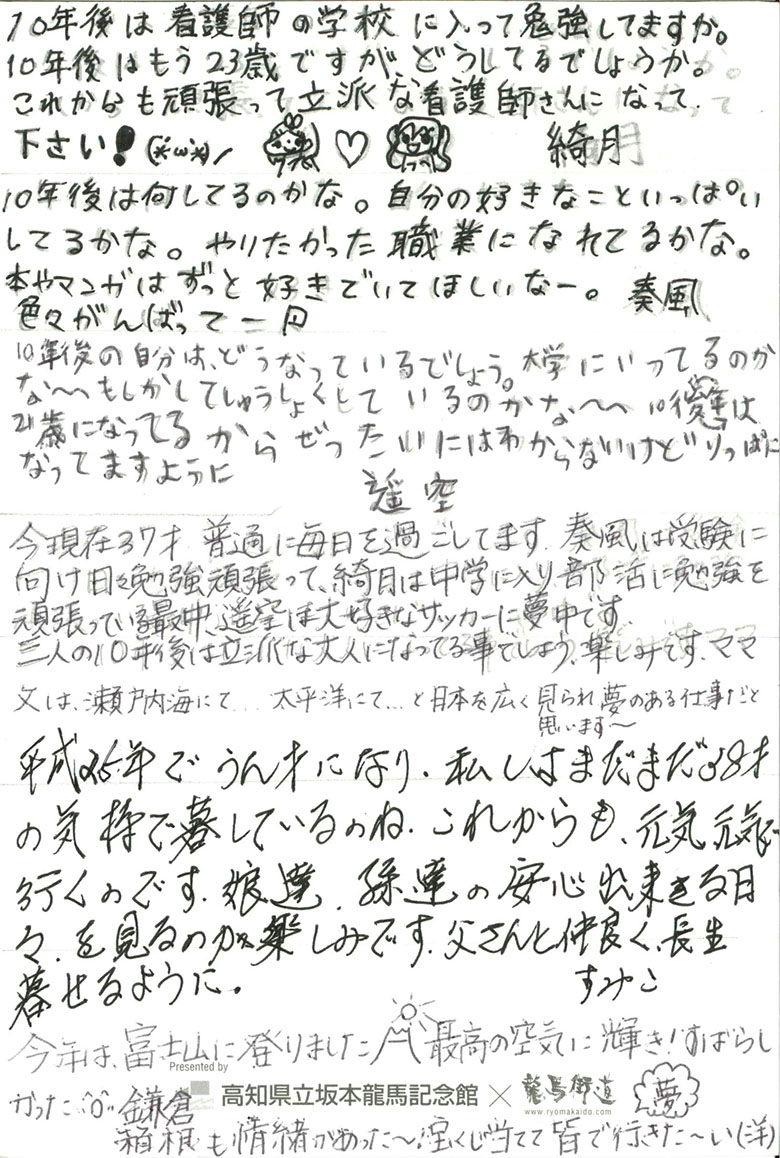 10年後は看護師の学校に入って勉強してますか。
10年後はもう23歳ですがどうしてるでしょうか。
これからも頑張って立派な看護師さんになって
下さい! 綺月
10年後は何してるのかな。自分の好きなこといっぱい
してるかな。やりたかった職業になれてるかな。
本やマンガはずっと好きでいてほしいなー。奏風
色々がんばって
10年後の自分は、どうなっているでしょう。大学にいってるのか
な〜〜もしかしてしゅうしょくしているのかな〜〜10年後は
21歳になってるからぜったいにはわからないけどりっぱに
なってますように
遥空
今現在37才 普通に毎日を過ごしてます。奏風は受験に
向け日々勉強頑張って、綺月は中学に入り部活に勉強を
頑張っている最中、遥空は大好きなサッカーに夢中です。
三人の10年後は立派な大人になってる事でしょう。楽しみです。ママ
父は、瀬戸内海にて… 太平洋にて…と日本を広く見られ夢のある仕事だと
思います〜
平成25年でうん才になり、私しはまだまだ38才
の気持で暮しているのね。これからも、元気元気で
行くのです。娘達、孫達の安心出来きる日
々を見るのが楽しみです。父さんと仲良く、長生
暮せるように。 すみこ
今年は、富士山に登りました 最高の空気に輝き!すばらし
Presented by
高知県立坂本龍馬記念館 × 龍馬街道 夢
www.ryomakaido.com
かった 鎌倉
箱根も情緒があった〜!宝くじ当てて皆で行きた〜い(洋)